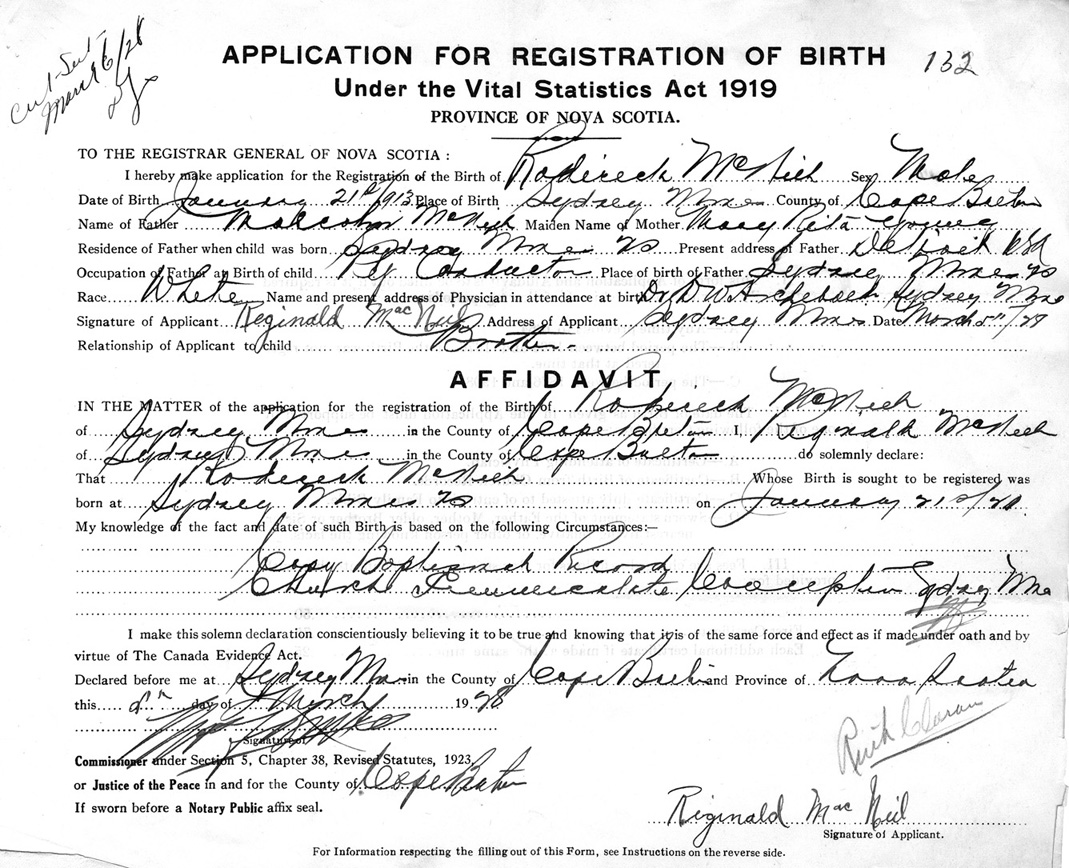 Cert Sent
March 6/28
APPLICATION FOR REGISTRATION OF BIRTH
132
Under the Vital Statistics Act 1919
PROVINCE OF NOVA SCOTIA.
TO THE REGISTRAR GENERAL OF NOVA SCOTIA :
I hereby make application for the Registration of the Birth of Roderick McNeil Sex Male
Date of Birth January 21st/913 Place of Birth Sydney Mines County of Cape Breton
Name of Father Malcolm McNeil Maiden Name of Mother Mary Rita Young
Residence of Father when child was born Sydney Mines NS Present address of Father Detroit USA
Occupation of Father at Birth of child Ry Conductor Place of birth of Father Sydney Mines NS
Race White Name and present address of Physician in attendance at birth Dr D W Archibald Sydney Mines
Signature of Applicant Reginald MacNeil Address of Applicant Sydney Mines Date March 5th/28
Relationship of Applicant to child Brother.
AFFIDAVIT
IN THE MATTER of the application for the registration of the Birth of Roderick McNeil
of Sydney Mines in the County of Cape Breton I, Reginald McNeil
of Sydney Mines in the County of Cape Breton do solemnly declare:
That Roderick McNeil Whose Birth is sought to be registered was
born at Sydney Mines NS on January 21st
My knowledge of the fact and date of such Birth is based on the following Circumstances:—
Copy Baptismal Record
Church Immaculate Conception Sydney Mines
I make this solemn declaration conscientiously believing it to be true and knowing that it is of the same force and effect as if made under oath and by
virtue of The Canada Evidence Act.
Declared before me at Sydney Mines in the County of Cape Breton and Province of Nova Scotia
this day of March 1928
Signature of
Commissioner under Section 5, Chapter 38, Revised Statutes, 1923,
or Justice of the Peace in and for the County of Cape Breton
If sworn before a Notary Public affix seal.
Ruth
Reginald MacNeil
Signature of Applicant.
For Information respecting the filling out of this Form, see Instructions on the reverse side.